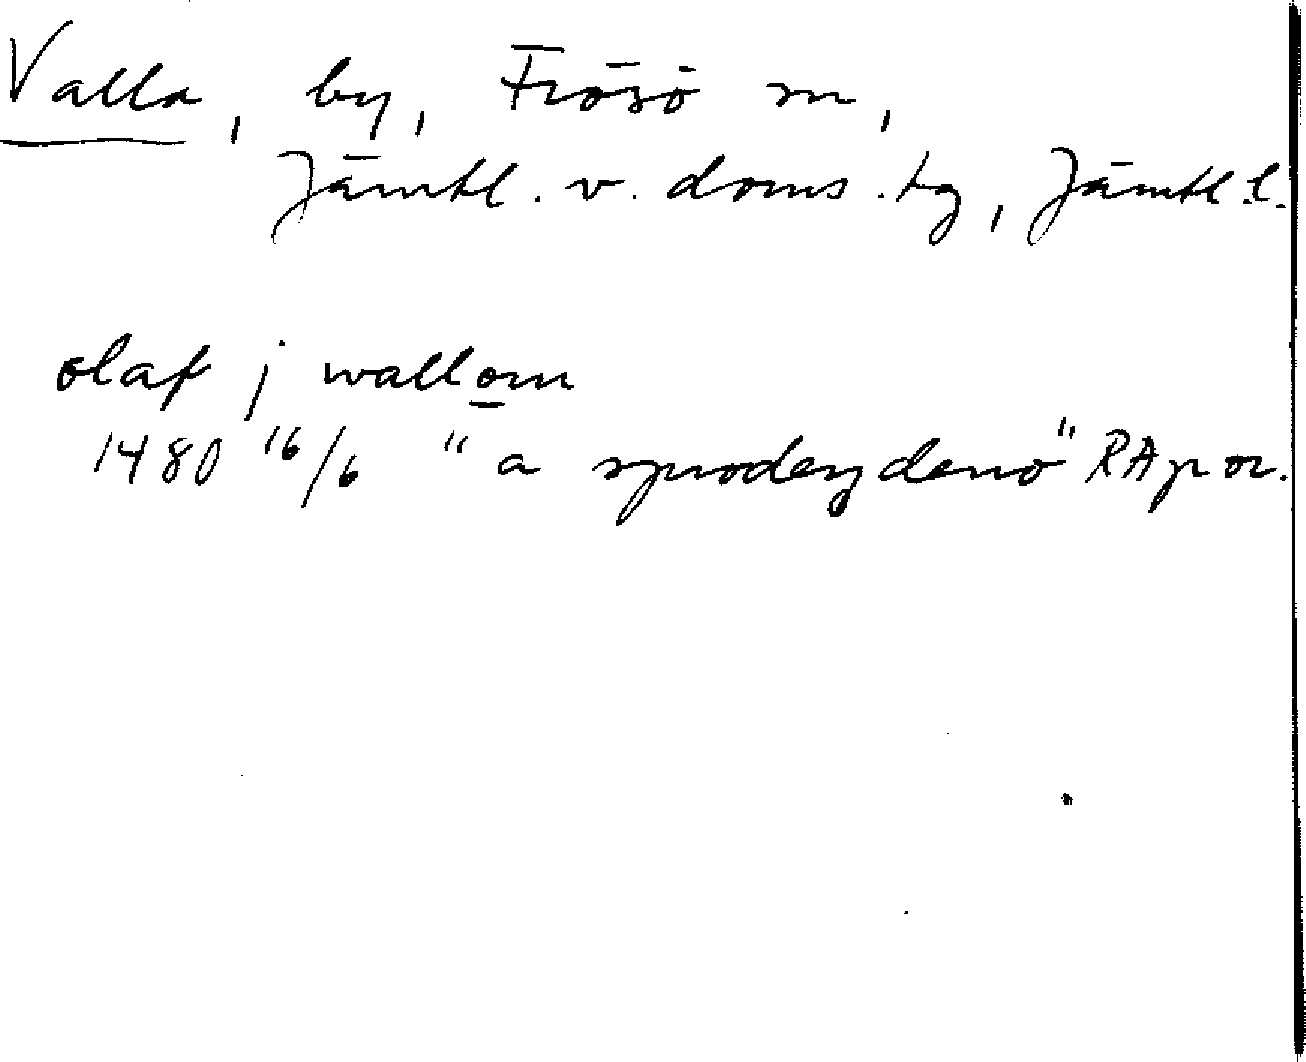 Valla, by, Frösö sn,
Jämtl. v. doms. tg, Jämtl. l.
olaf j wallom
1480 16/6 "a sproderydenö" RAp or.